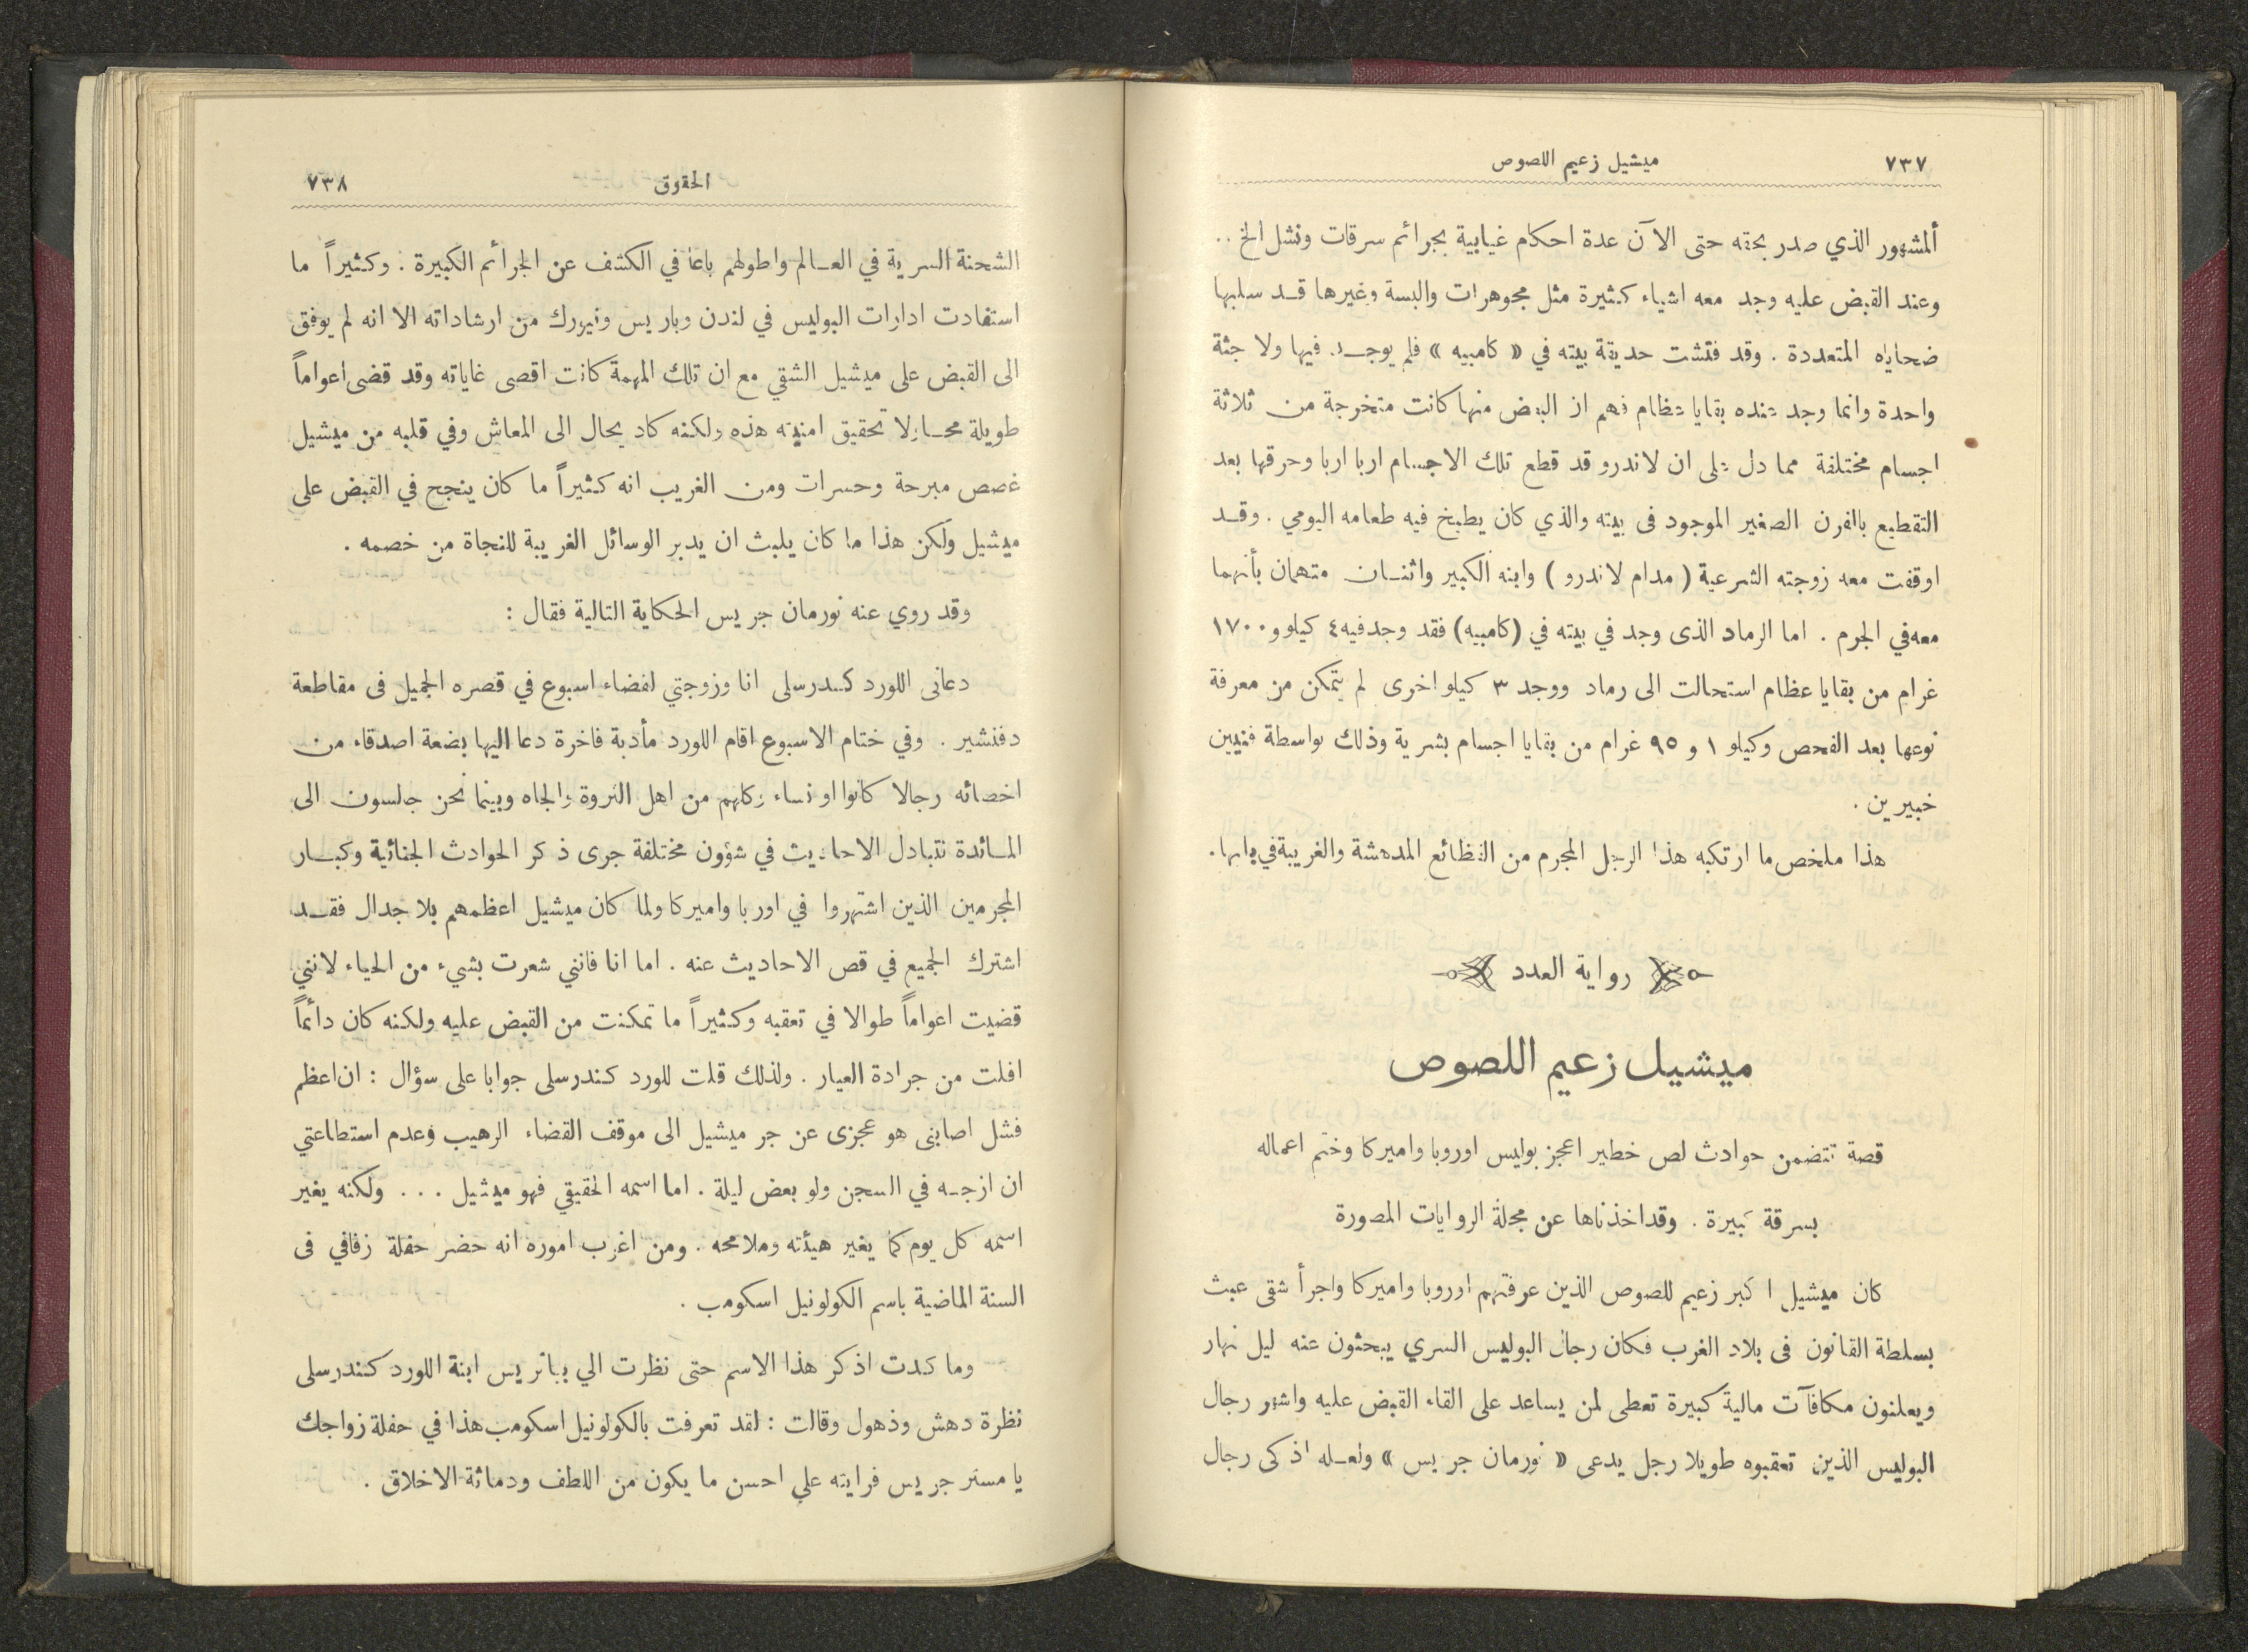 ٧٣٧
ميشيل زعيم اللصوص
ألمشهور الذي صدر بحقه حتى الآن عدة احكام غيابية بجرائم سرقات ونشل الخ ..
وعند القبض عليه وجد معه اشياء كثيرة مثل مجوهرات والبسة وغيرها قد سلبها
ضحاياه المتعددة . وقد فتشت حديقة بيته في « كامبيه » فلم يوجد فيها ولا جثة
واحدة وانما وجد عنده بقايا عظام فهم ان البعض منها كانت متخرجة من ثلاثة
اجسام مختلفة مما دل على ان لاندرو قد قطع تلك الاجسام اربا اربا وحرقها بعد
التقطيع بالفرن الصغير الموجود فى بيته والذي كان يطبخ فيه طعامه اليومي . وقد
اوقفت معه زوجته الشرعية ( مدام لاندرو ) وابنه الكبير واثنان متهمان بأنهما
معه في الجرم . اما الرماد الذى وجد في بيته في (كامبيه) فقد وجد فيه ٤ كيلو و ١٧٠٠
غرام من بقايا عظام استحالت الى رماد ووجد ٣ كيلو اخرى لم يتمكن من معرفة
نوعها بعد الفحص وكيلو ١ و ٩٥ غرام من بقايا اجسام بشرية وذلك بواسطة فنيين
خبيرين .
هذا ملخص ما ارتكبه هذا الرجل المجرم من الفظائع المدهشة والغريبة في بابها .
رواية العدد
ميشيل زعيم اللصوص
قصة تتضمن حوادث لص خطير اعجز بوليس اوروبا واميركا وختم اعماله
بسرقة كبيرة . وقد اخذناها عن مجلة الروايات المصورة
كان ميشيل اكبر زعيم للصوص الذين عرفتهم اوروبا واميركا واجرأ شقى عبث
بسلطة القانون فى بلاد الغرب فكان رجال البوليس السري يبحثون عنه ليل نهار
ويعلنون مكافآت مالية كبيرة تعطى لمن يساعد على القاء القبض عليه واشهر رجال
البوليس الذين تعقبوه طويلا رجل يدعى « نورمان جريس » ولعله اذكى رجال
الحقوق
٧٣٨
الشحنة السرية في العالم واطولهم باعا في الكشف عن الجرائم الكبيرة . وكثيراً ما
استفادت ادارات البوليس في لندن وباريس ونيورك من ارشاداته الا انه لم يوفق
الى القبض على ميشيل الشقي مع ان تلك المهمة كانت اقصى غاياته وقد قضى اعواماً
طويلة محاولا تحقيق امنيته هذه ولكنه كاد يحال الى المعاش وفي قلبه من ميشيل
غصص مبرحة وحسرات ومن الغريب انه كثيراً ما كان ينجح في القبض على
ميشيل ولكن هذا ما كان يلبث ان يدبر الوسائل الغريبة للنجاة من خصمه .
وقد روي عنه نورمان جريس الحكاية التالية فقال :
دعانى اللورد كندرسلى انا وزوجتي لقضاء اسبوع في قصره الجميل فى مقاطعة
دفنشير . وفي ختام الاسبوع اقام اللورد مأدبة فاخرة دعا اليها بضعة اصدقاء من
اخصائه رجالا كانوا او نساء وكلهم من اهل الثروة والجاه وبينما نحن جالسون الى
المائدة نتبادل الاحاديث في شؤون مختلفة جرى ذكر الحوادث الجنائية وكبار
المجرمين الذين اشتهروا في اوربا واميركا ولما كان ميشيل اعظمهم بلا جدال فقد
اشترك الجميع في قص الاحاديث عنه . اما انا فانني شعرت بشيء من الحياء لانني
قضيت اعواماً طوالا في تعقبه وكثيراً ما تمكنت من القبض عليه ولكنه كان دائماً
افلت من جرادة العيار . ولذلك قلت للورد كندرسلى جوابا على سؤال : ان اعظم
فشل اصابنى هو عجزى عن جر ميشيل الى موقف القضاء الرهيب وعدم استطاعتي
ان ازجه في السجن ولو بعض ليلة . اما اسمه الحقيقي فهو ميشيل ... ولكنه يغير
اسمه كل يوم كما يغير هيئته وملامحه . ومن اغرب اموره انه حضر حفلة زفافي فى
السنة الماضية باسم الكولونيل اسكومب .
وما كدت اذكر هذا الاسم حتى نظرت الي بباتريس ابنة اللورد كندرسلى
نظرة دهش وذهول وقالت : لقد تعرفت بالكولونيل اسكومب هذا في حفلة زواجك
يا مستر جريس فرايته علي احسن ما يكون من اللطف ودماثة الاخلاق .